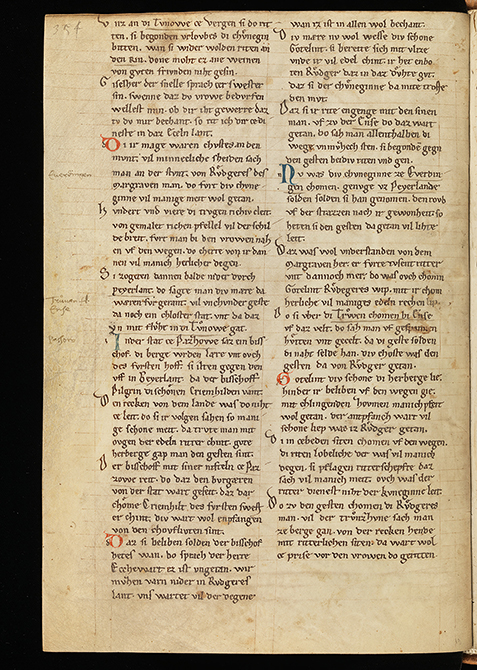 354
vnz an di Tvnowe ce Vergen si do rit
ten. si begonden vrlovbes di chvnegin
bitten. wan si wider wolden riten an
den Rin. done moht ez ane weinen
von gvten frivnden niht gesin.
Giselher der snelle sprach zer swester
sin. swenne daz dv vrowe bedvrfen
wellest min. ob dir iht gewerre daz
tv dv mir bechant. so rit ich dir ce di
neste in daz Eceln lant.
Di ir mage waren chvstes an den
mvnt. vil minnecliche sheiden sach
man an der stvnt. von Rvdegeres
margraven man. do fvrt div chvne
ginne vil manige meit wol getan.
Hvndert vnd viere di trvgen richiv cleit
von gemalet richen pfellel. vil der schil
de breit. fvrt man bi den vrowen nah
en vf den wegen. do cherte von ir dan
nen vil manich herlicher degen.
Si zogeten dannen balde nider dvrch
Peyerlant. do sagte man div mære da
waren fvr gerant. vil vnchvnder geste
da noch ein chloster stat. vnt da daz
yn mit flvhte in di Tvnowe gat.
In der stat ce Pazzowe saz ein bissc
hof. di berge wrden lære vnt ovch
des fvrsten hof. si ilten gegen den
vf in Beyerlant. da der bisschof
Pilgrin di schonen Criemhilden vant.
Den recken von dem lande was do niht
ce leit. do si ir volgen sahen so mani
ge schone meit. da trvte man mit
ovgen der edeln ritter chint. gvte
herberge gap man den gesten sint.
Der bisschof mit siner nifteln ce Paz
zowe reit. do daz den bvrgæren
von der stat wart geseit. daz dar
chome Criemhilt des fvrsten swest
er chint. div wart wol enpfangen
von den chovflivten sint.
Daz si beliben solden der bisschof
hetes wan. do sprach der herre
Ecchewart ez ist vngetan. wir
mvzen varn nider in Rvdegeres
lant. vns wartet vil der degene
wan ez ist in allen wol bechant.
Div mære nv wol wesse div schone
Gotelint. si bereite sich mit vlize
vnde ir vil edel chint. ir het enbo
ten Rvdger daz in daz dvhte gvt.
daz si der chvneginne da mite troste
den mvt.
Daz si ir rite engegne mit den sinen
man. vf zv der Ense do daz wart
getan. do sah man allenthalben di
wege vnmvzech sten. si begonde gegn
den gesten beidiv riten vnd gen.
Nv was div chvneginne ce Everdin
gen chomen. genvge vz Peyerlande
solden solden si han genomen. den rovb
vf der strazzen nach ir gewonheit so
heten si den gesten da getan vil lihte
leit.
Daz was wol vnderstanden von dem
margraven her. er fvrte tvsent ritter
vnt dannoch mer. do was ovch chomn
Gotelint Rvdegeres wip. mit ir chom
herliche vil maniges edeln recken lip.
Do si vber di Trvwen chomen bi Ense
vf daz velt. do sah man vf gespannen
hvtten vnt gecelt. da di geste solden
di naht selde han. div choste was den
gesten da von Rvdger getan.
Gotelint div schone di herberge lie
hinder ir beliben. vf den wegen gie.
mit chlingenden zovmen manich pfært
wol getan. der antpfanch wart vil
schone liep was iz Rvdger getan.
Di in cebeden siten chomen vf den wegen.
di riten lobeliche der was vil manich
degen. si pflagen ritterschefte daz
sach vil manich meit. ovch was der
ritter dienest niht der kvneginne leit.
Do zv den gesten chomen di Rvdgeres
man. vil der trvnzvne sach man
ze berge gan. von der recken hende
mit ritterlichen siten. da wart wol
ce prise vor den vrowen do geritten.